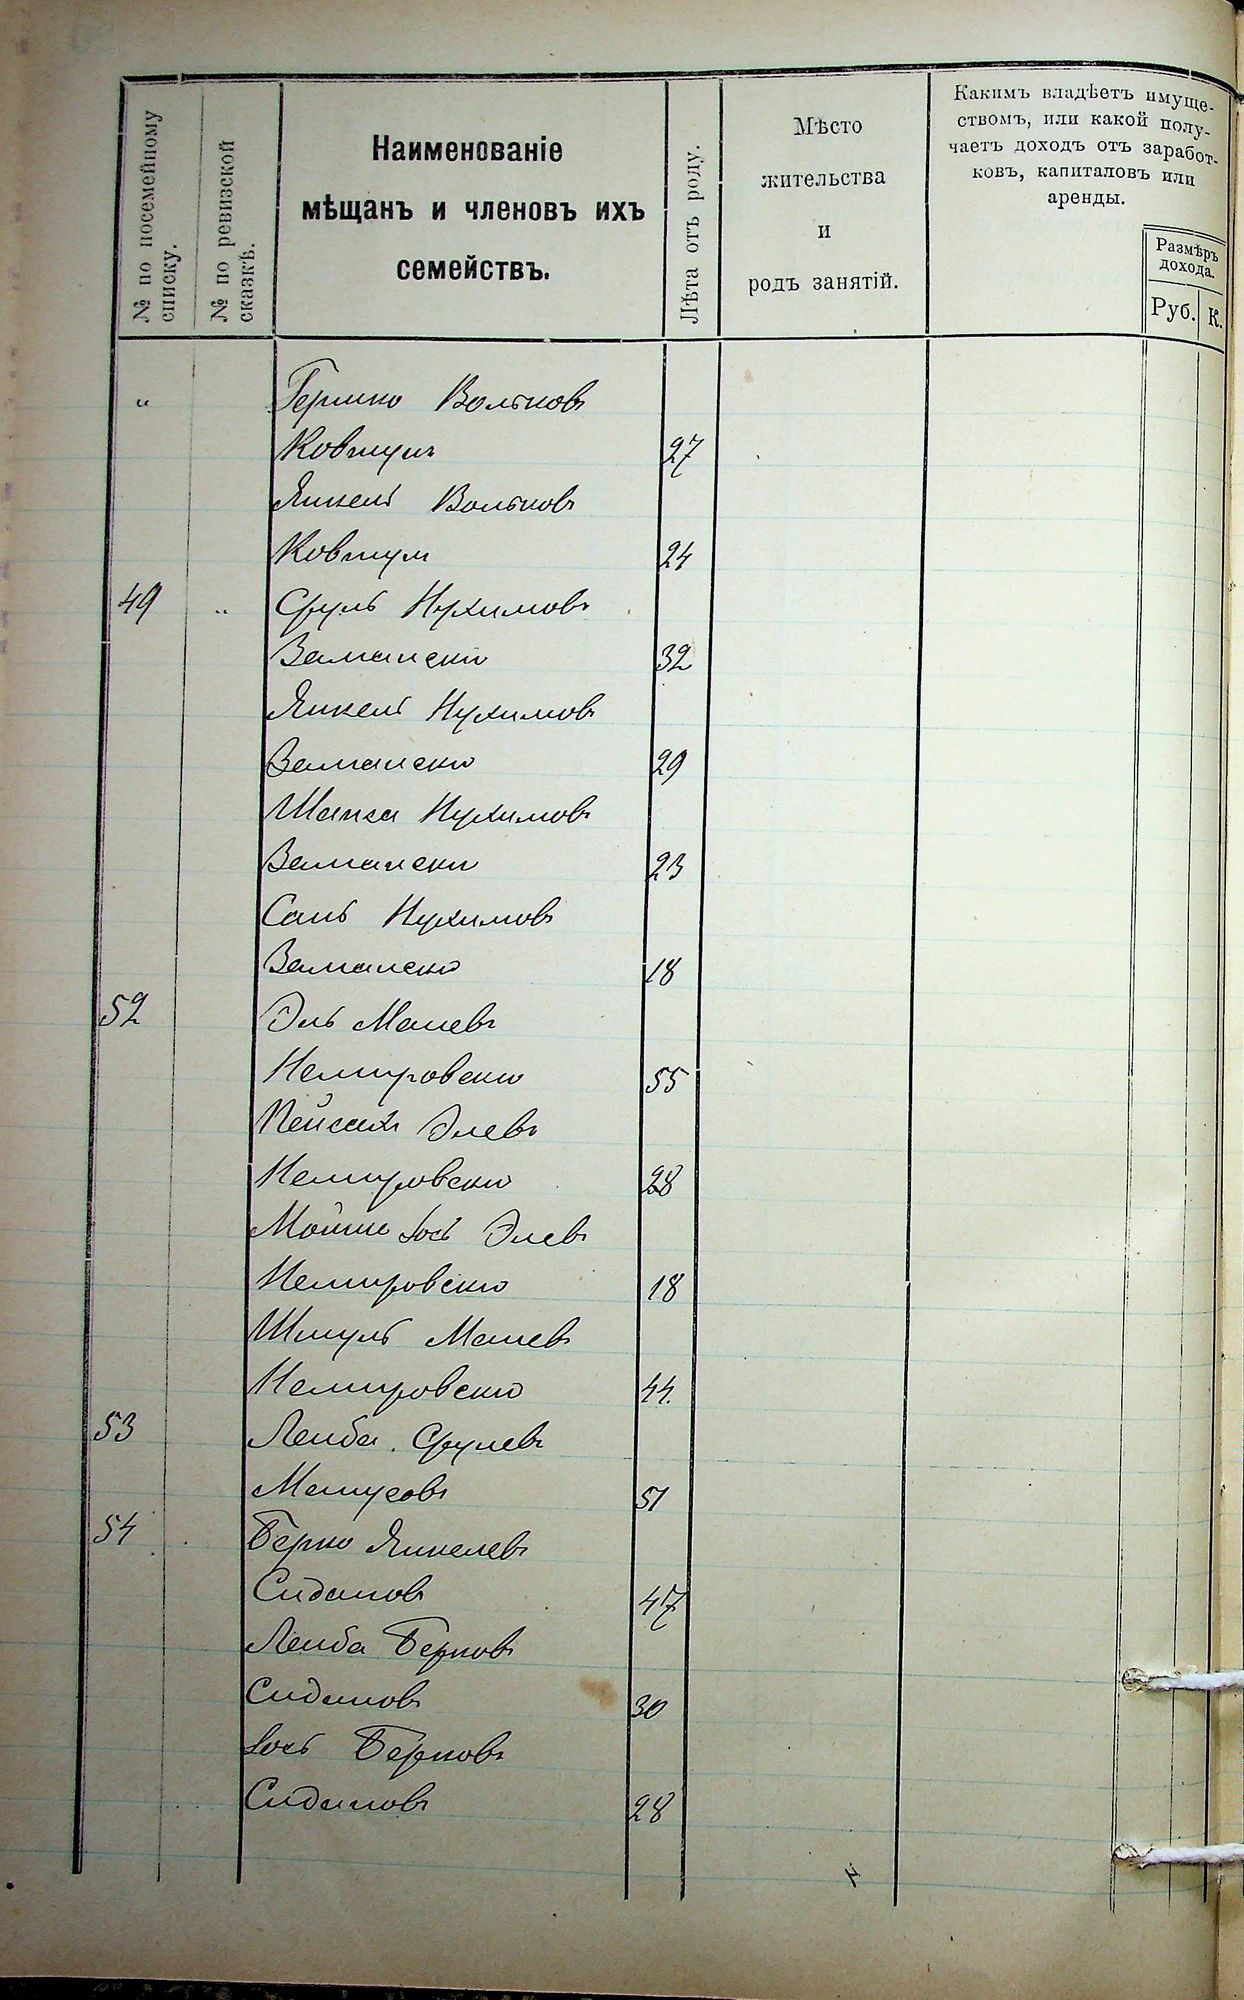 № по посемейному
списку.
№ по ревизской
сказкѣ.
Наименованіе
мѣщанъ и членовъ ихъ
семействъ.
Лѣта отъ роду.
Мѣсто
жительства
и
родъ занятій.
Какимъ владѣетъ имуще-
ствомъ, или какой полу-
чаетъ доходъ отъ заработ-
ковъ, капиталовъ или
аренды.
Размѣръ
дохода.
Руб. К.
" Гершко Вольковъ
Ковтунъ 27
Янкель Вольковъ
Ковтун 24
49 " Сруль Нухимовъ
32
Янкель Нухимовъ
29
Нухимовъ
23
Нухимовъ
18
52 Эль
Немировскiй 55
Пейсахъ Элевъ
Немировскiй 28
Мойше Іось Элевъ
Немировскiй 18
Шмуль
Немировскiй 44.
53 Лейба Срулевъ
51
54 Берко Янкелевъ
47
Лейба Берковъ
30
Іось Берковъ
28